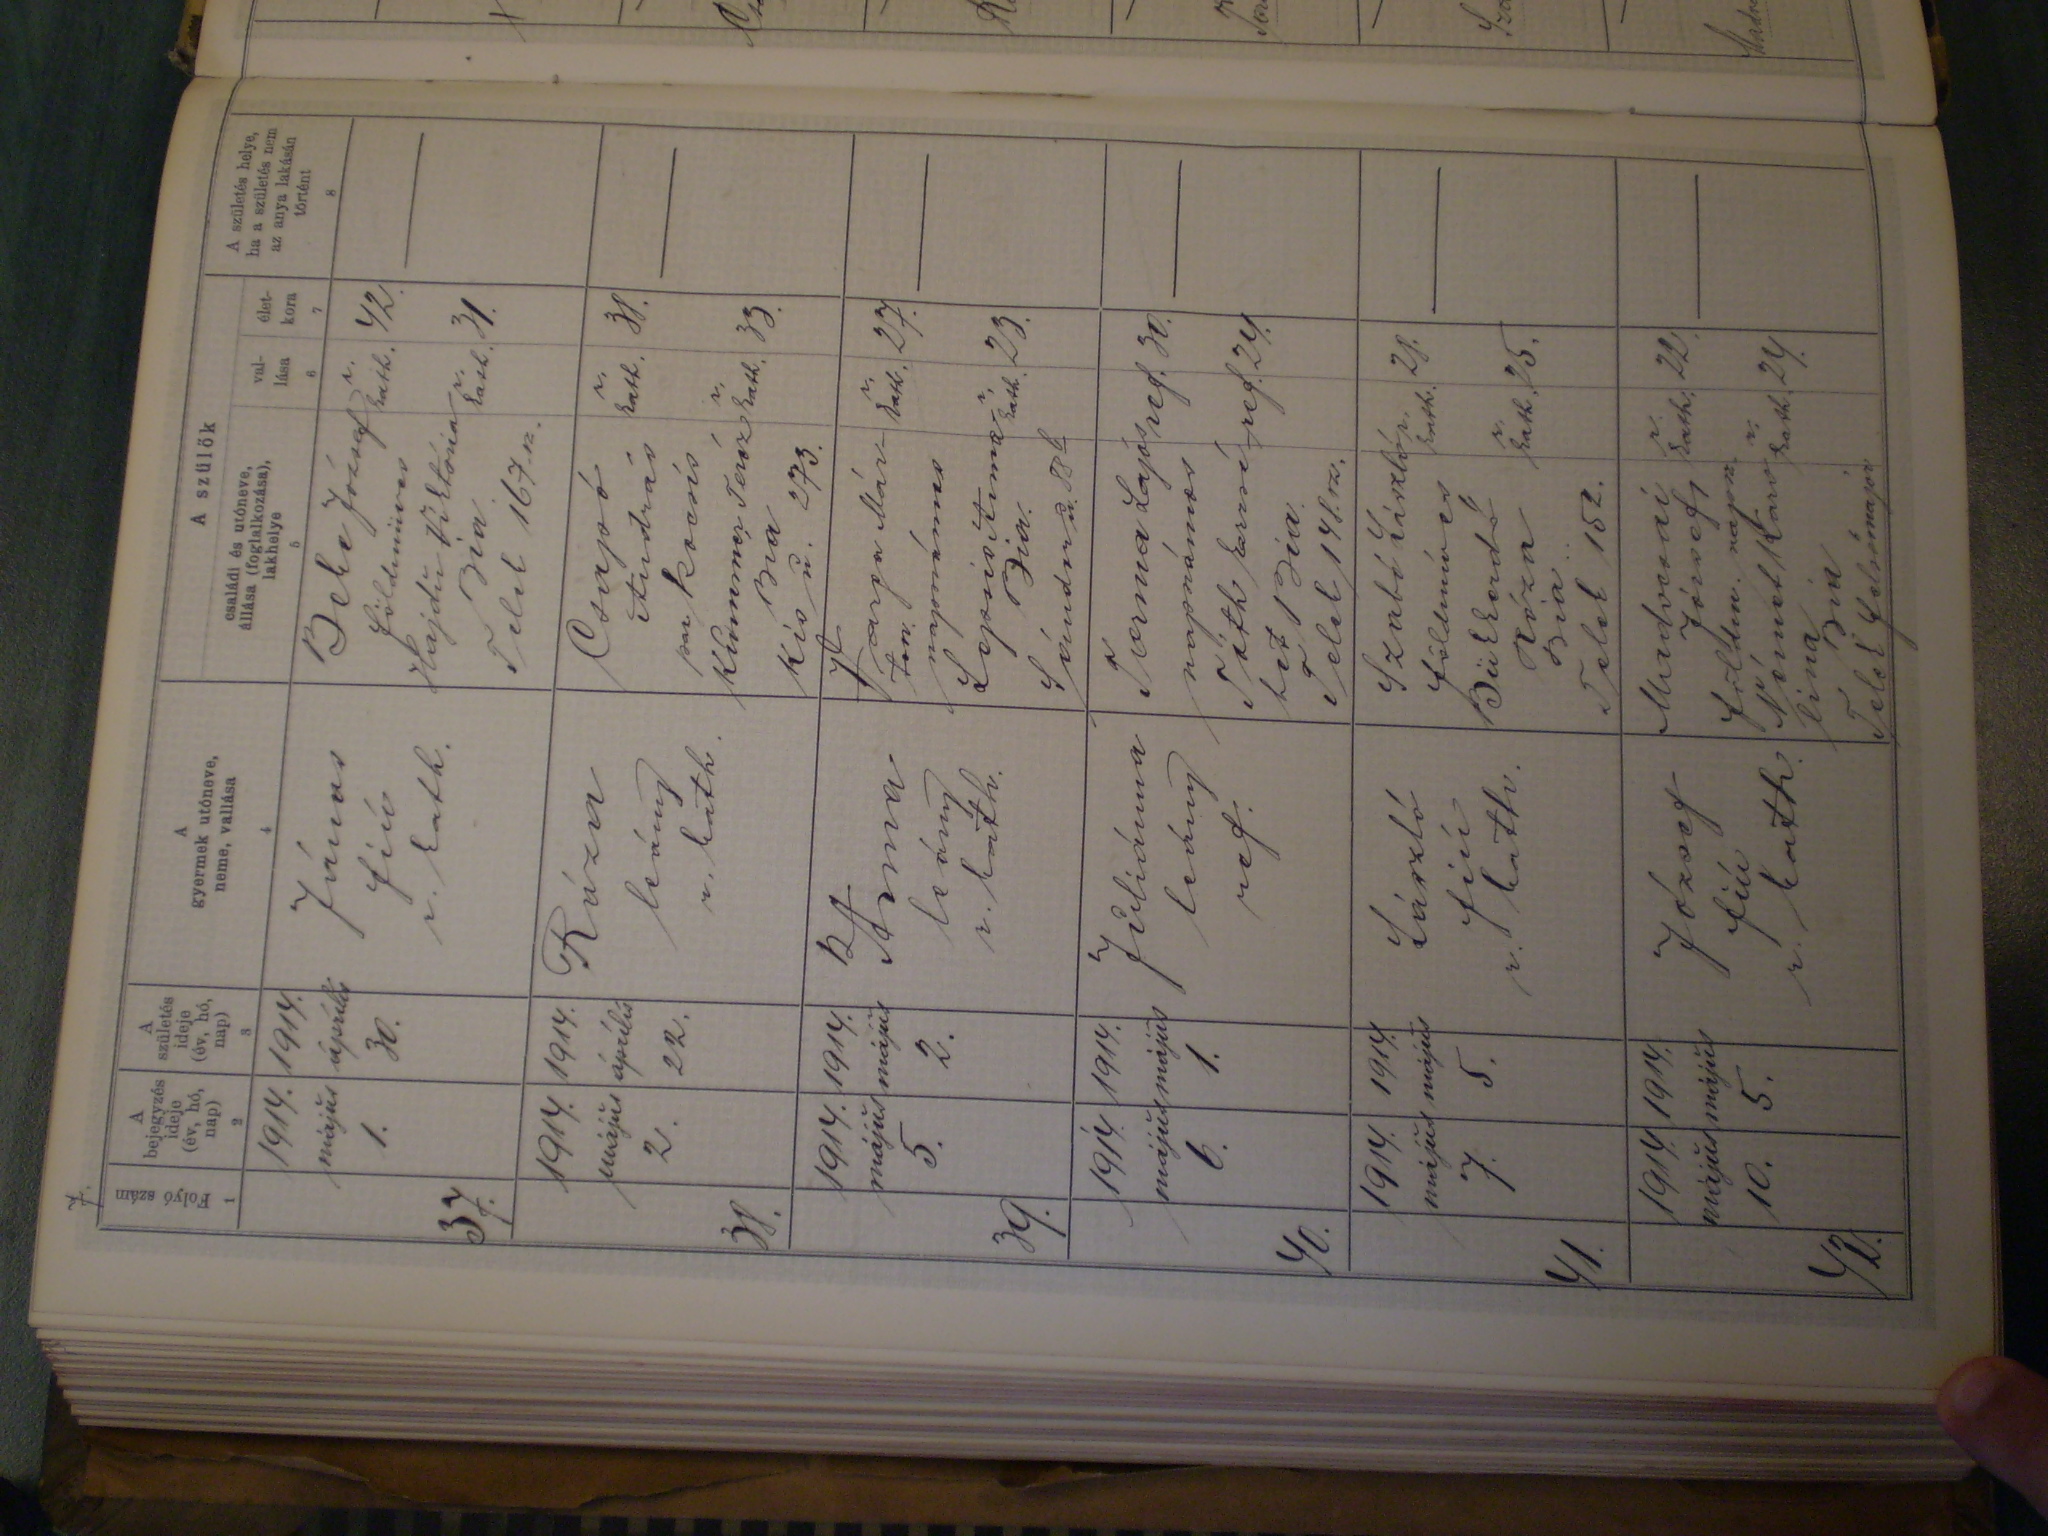 7.
Folyó szám
1
A
bejegyzés
ideje
(év, hó,
nap)
2
A
születés
ideje
(év, hó,
nap)
3
A
gyermek utóneve,
neme, vallása
4
A szülők
családi és utóneve,
állása (foglalkozása),
lakhelye
5
val-
lása
6
élet-
kora
7
A születés helye,
ha a születés nem
az anya lakásán
történt
8
37.
1914.
május
1.
1914.
április
30.
János
fiú
r. kath.
Beke József
földmüves
r.
kath.
42.
Hajdu Viktória
Bia
Telek 167
r.
kath.
31.
38.
1914.
május
2.
1914.
április
22.
Róza
leány
r. kath.
Csapó
András
kocsis
r.
kath.
38.
Kummer Teréz
Bia
Kis u. 273.
r.
kath.
33.
39.
1914.
május
5.
1914.
május
2.
Anna
leány
r. kath.
Varga Már-
ton
napszámos
r.
kath.
27.
Anna
Bia.
Sándor u.
r.
kath.
23.
40.
1914.
május
6.
1914.
május
1.
Juliánna
leány
ref.
Torma Lajos
napszámos
ref.
30.
Tóth Erzsé-
bet Bia.
Telek 148.
ref.
24.
41.
1914.
május
7.
1914.
május
5.
László
fiú
r. kath.
Szabó László
földmüves
r.
kath.
28.
Róza
Bia
Telek 152.
r.
kath.
25.
42.
1914.
május
10.
1914.
május
5.
József
fiú
r. kath.
József
földm. napsz.
r.
kath.
22.
Német Karo-
lina
Bia
Telek
r.
kath.
24.